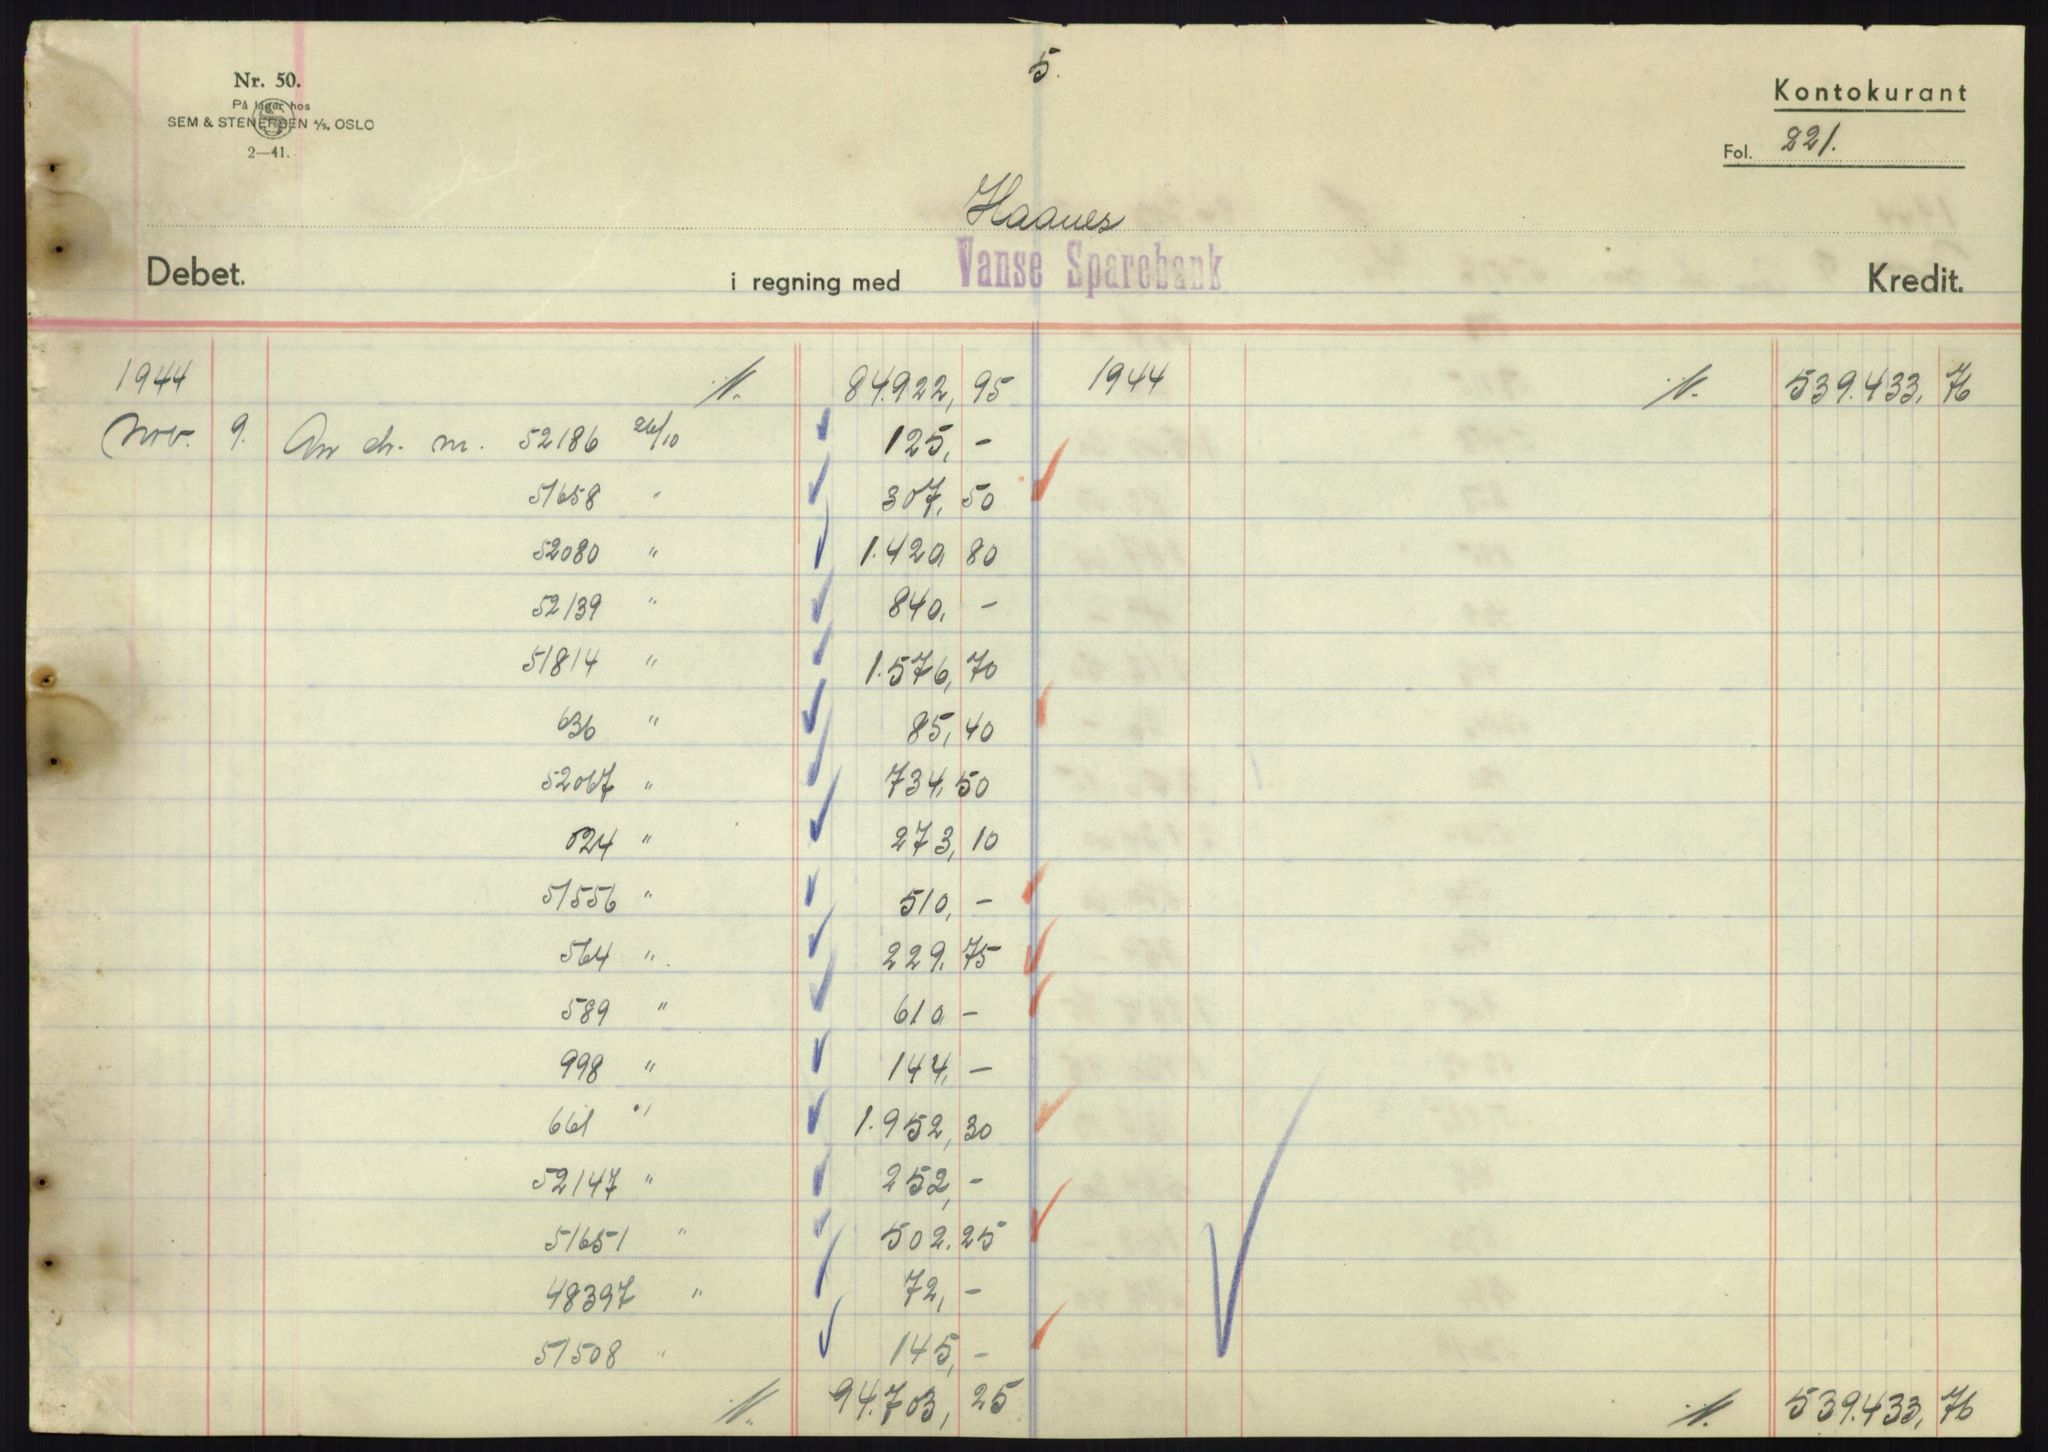 5.
Nr. 50.
På lager hos
SEM & STENERSEN A/S, OSLO
2—41.
Kontokurant
Fol. 221.
Haanes
Debet. i regning med Vanse Sparebank Kredit.
1944 ./. 84.922,95 1944 ./. 539.433,76
Nov. 9. An ch. nr. 52186 26/10 125,-
51658 " 307,50
52080 " 1.420,80
52139 " 840,-
51814 " 1.576,70
636 " 85,40
52067 " 734,50
024 " 273,10
51556 " 510,-
564 " 229,75
589 " 610,-
998 " 144,-
661 " 1.952,30
52147 " 252,-
51651 " 502,25
48397 " 72,-
51508 " 145,-
./. 94.703,25 ./. 539.433,76